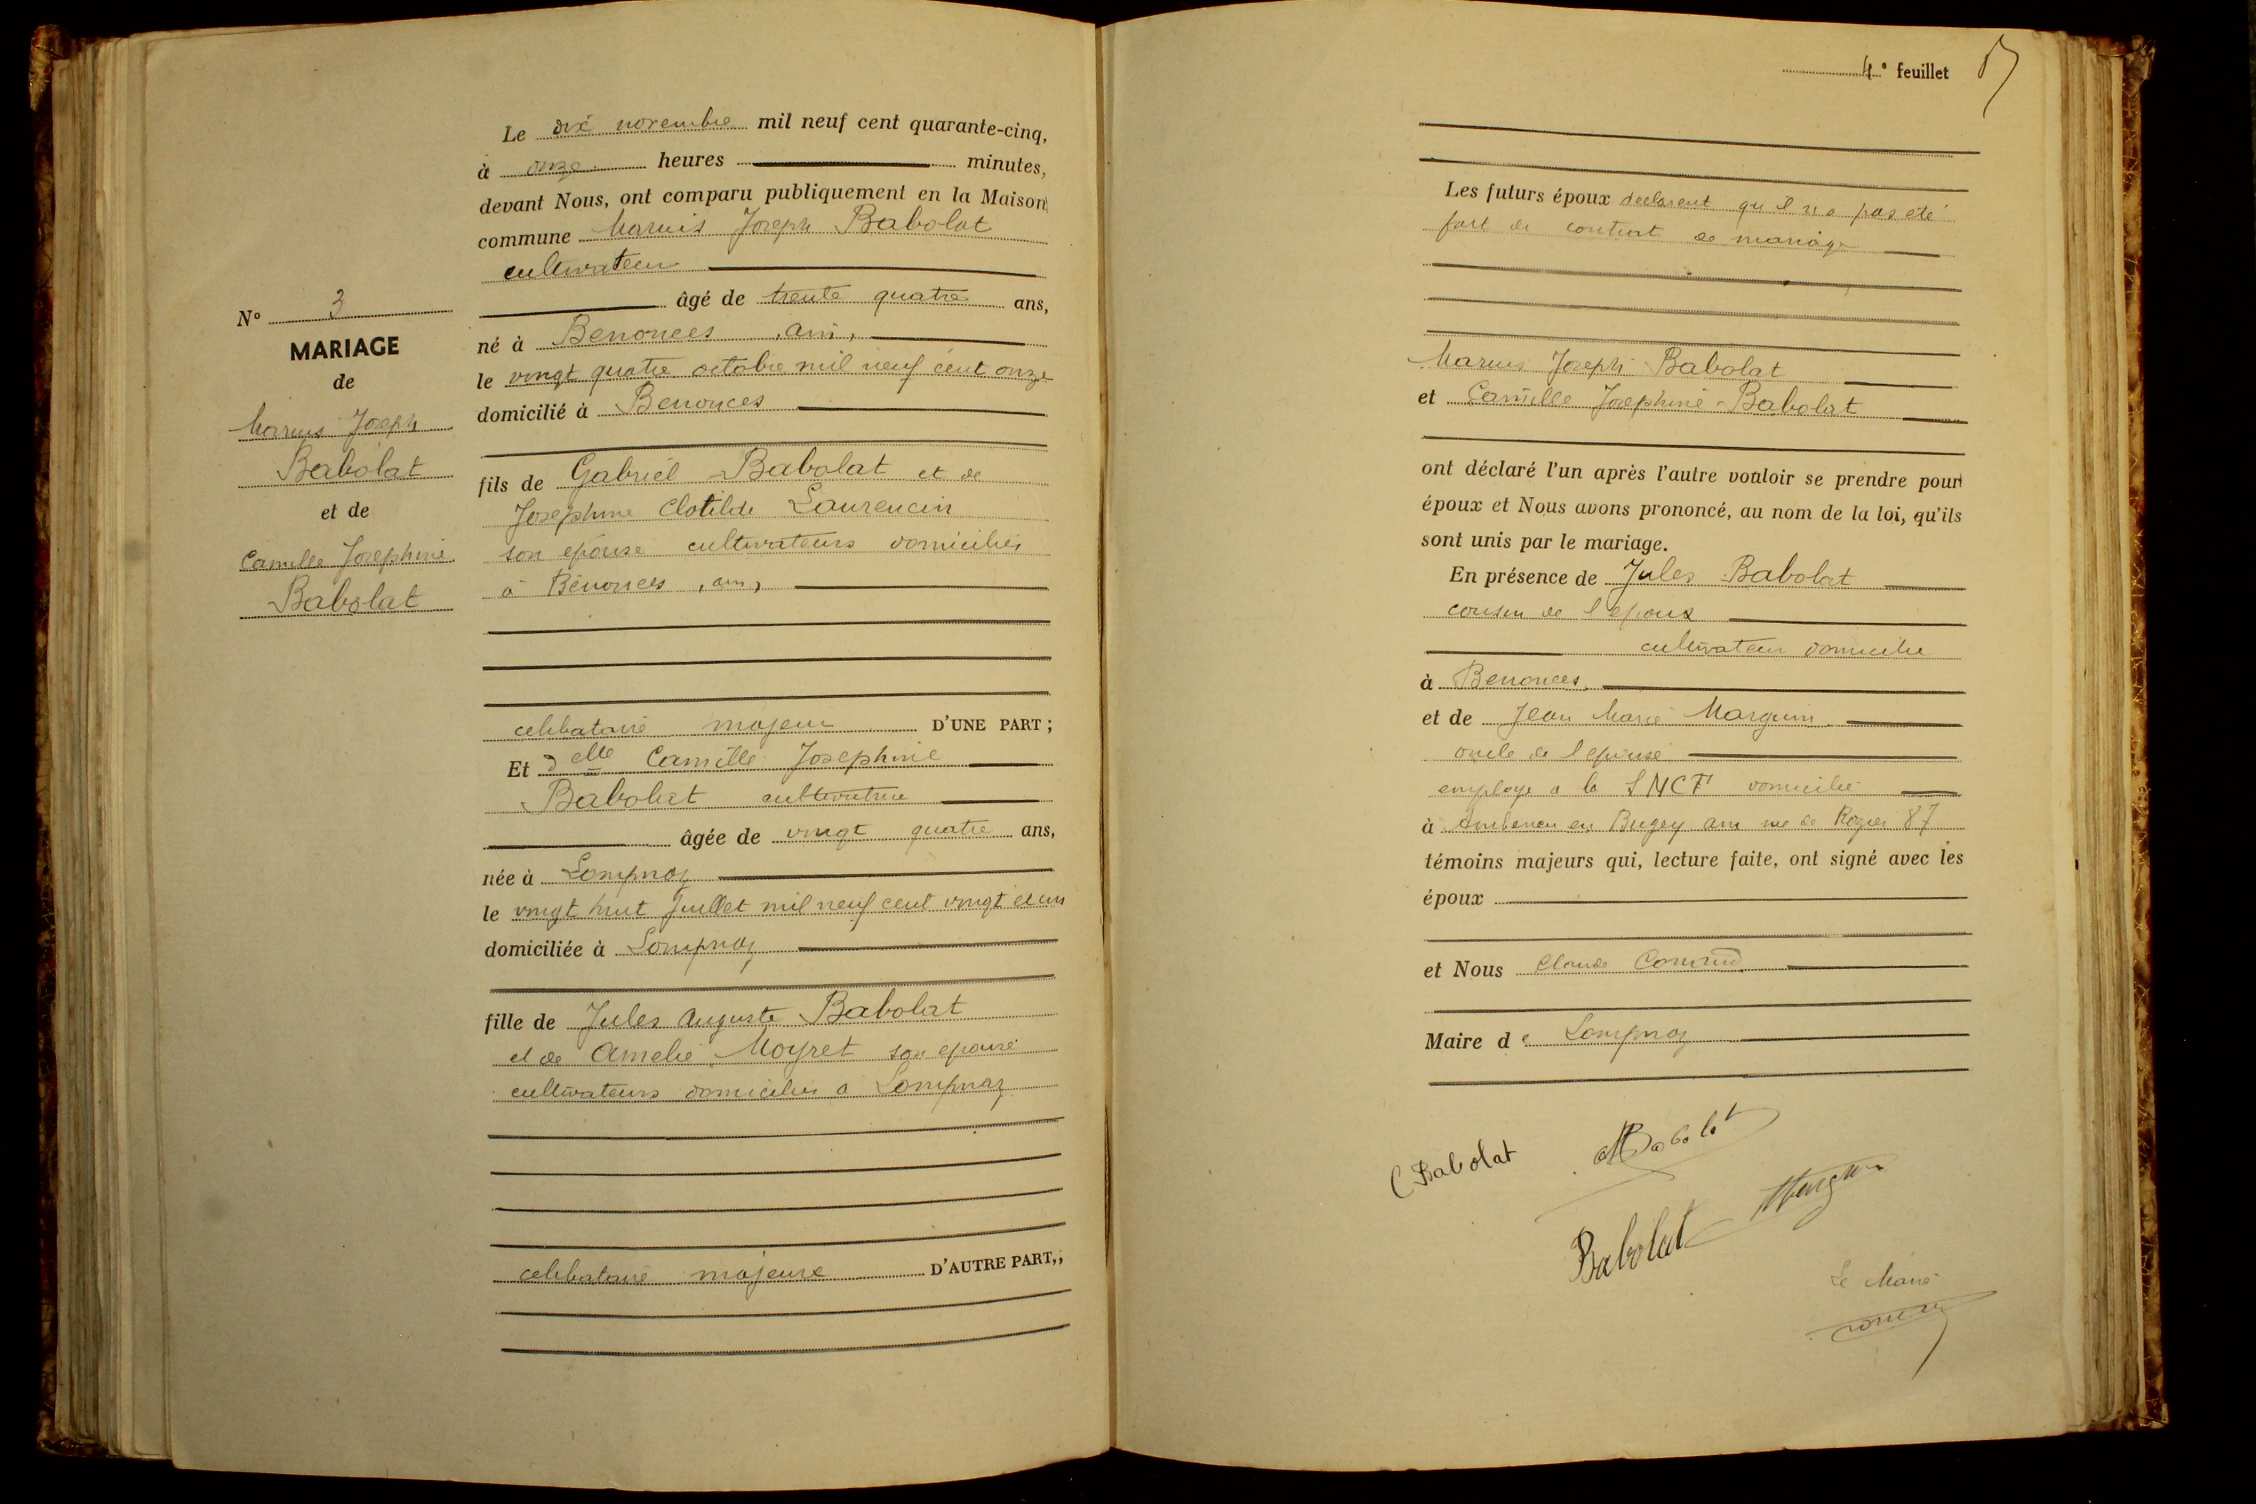 N° 3
MARIAGE
de
Marius Joseph
Babolat
et de
Camille Josephine
Babolat
Le dix novembre mil neuf cent quarante-cinq,
à onze heures minutes,
devant Nous, ont comparu publiquement en la Maison
commune Marius Joseph Babolat
cultivateur
âgé de trente quatre ans,
né à Benonces, ain,
le vingt quatre octobre mil neuf cent onze
domicilié à Benonces
fils de Gabriel Babolat et de
Josephine Clotilde Laurencin
son epouse cultivateurs domicilies
à Bénonces, ain,
celibataire majeur D'UNE PART ;
Et delle Camille Josephine
Babolat cultivatrice
âgée de vingt quatre ans,
née à Lompnaz
le vingt huit Juillet mil neuf cent vingt et un
domiciliée à Lompnaz
fille de Jules Auguste Babolat
et de Amelie Moyret son epouse
cultivateurs domicilies a Lompnaz
celibataire majeure D'AUTRE PART,;
4e feuillet
Les futurs époux declarent qu il n a pas eté
fait de contrat de mariage
Marius Joseph Babolat
et Camille Josephine Babolat
ont déclaré l'un après l'autre vouloir se prendre pour
époux et Nous avons prononcé, au nom de la loi, qu'ils
sont unis par le mariage.
En présence de Jules Babolat
cousin de l epoux
cultivateur domicilie
à Benonces,
et de Jean Marie Marguin
oncle de l epouse
employe a la SNCF domicilie
à en Bugey ain rue de 87
témoins majeurs qui, lecture faite, ont signé avec les
époux
et Nous Claude
Maire de Lompnaz
C Babolat
MBabolat
Babolat
Marguin
Le Maire